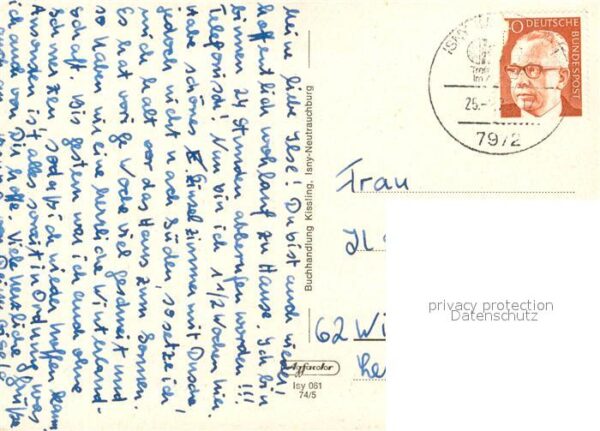 Meine liebe Ilse! Du bist auch wieder
hoffentlich wohlauf zu Hause. Ich bin
binnen 24 Stunden abberufen worden!!!
Telefonisch! Nun bin ich 1 1/2 Wochen hier,
habe schönes Einzelzimmer mit Dusche,
jedoch nicht nach Süden, so setze ich
mich halt vor das Haus zum Sonnen.
Es hat vorige Woche viel geschneit und
so haben wir eine herrliche Winterland-
schaft. Bis gestern war ich auch ohne
Schmerzen, so daß ich wieder hoffen kann.
Ansonsten ist alles soweit in Ordnung, was
ich auch von Dir hoffe. Viele herzliche Grüße
Buchhandlung Kissling, Isny-Neutrauchburg
Agfacolor
Isy 061
74/5
ISNY
25.
7972
DEUTSCHE
BUNDESPOST
Frau
62 Wi
privacy protection
Datenschutz